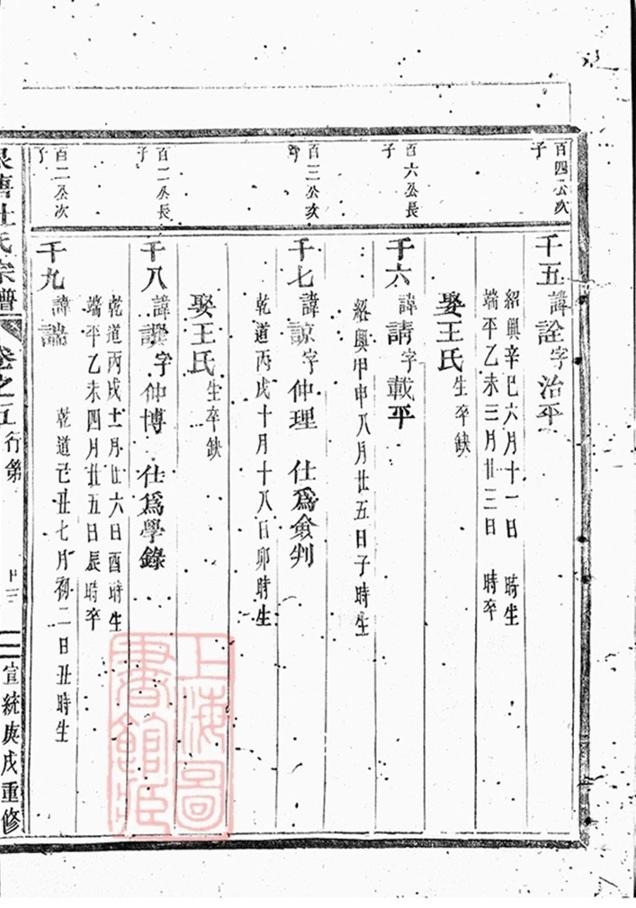 百四公次子
千五 諱詮 字治平
紹興辛巳六月十一日 時生
端平乙未三月廿三日 時卒
娶王氏 生卒缺
百六公長子
千六 諱請 字載平
紹興甲申八月廿五日子時生
百三公次子
千七 諱諒 字仲理 仕爲僉判
乾道丙戌十月十八日卯時生
娶王氏 生卒缺
百二公長子
千八 諱 字仲博 仕爲學錄
乾道丙戌十一月廿六日酉時生
端平乙未四月廿五日辰時卒
百二公次子
千九 諱
乾道己丑七月初二日丑時生
塘杜氏宗譜 卷之五 行第 宣統庚戌重修
上海圖書館藏